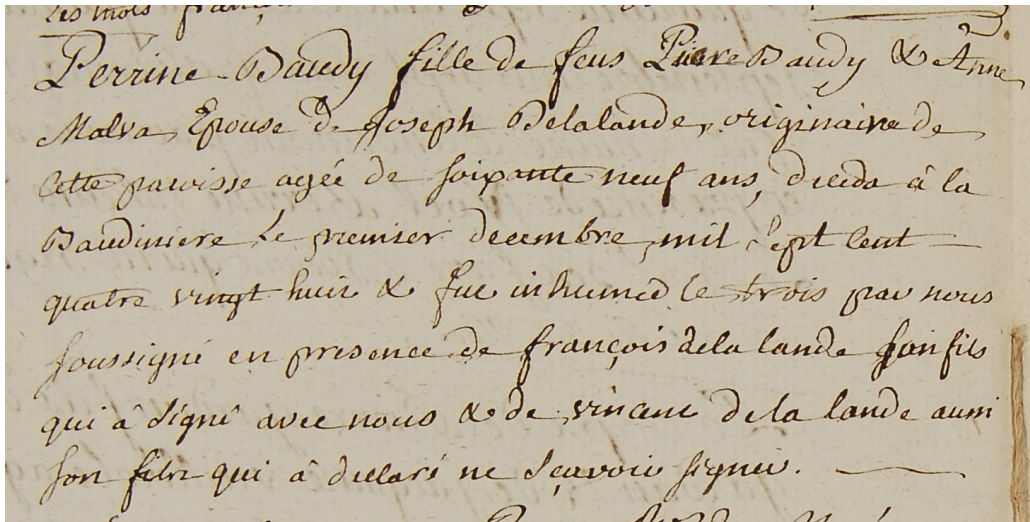 Les mots
Perrine Baudy fille de feus Pierre Baudy & Anne
Malva, Epouse de Joseph Delalande, originaire de
Cette paroisse agée de soixante neuf ans, déceda à la
Baudiniere le premier decembre mil sept cent
quatre vingt huit & fut inhumeé le trois par nous
soussigné en presence de françois dela lande son fils
qui à signé avec nous & de vincent dela lande aussi
son fils qui à declaré ne sçavoir signer.